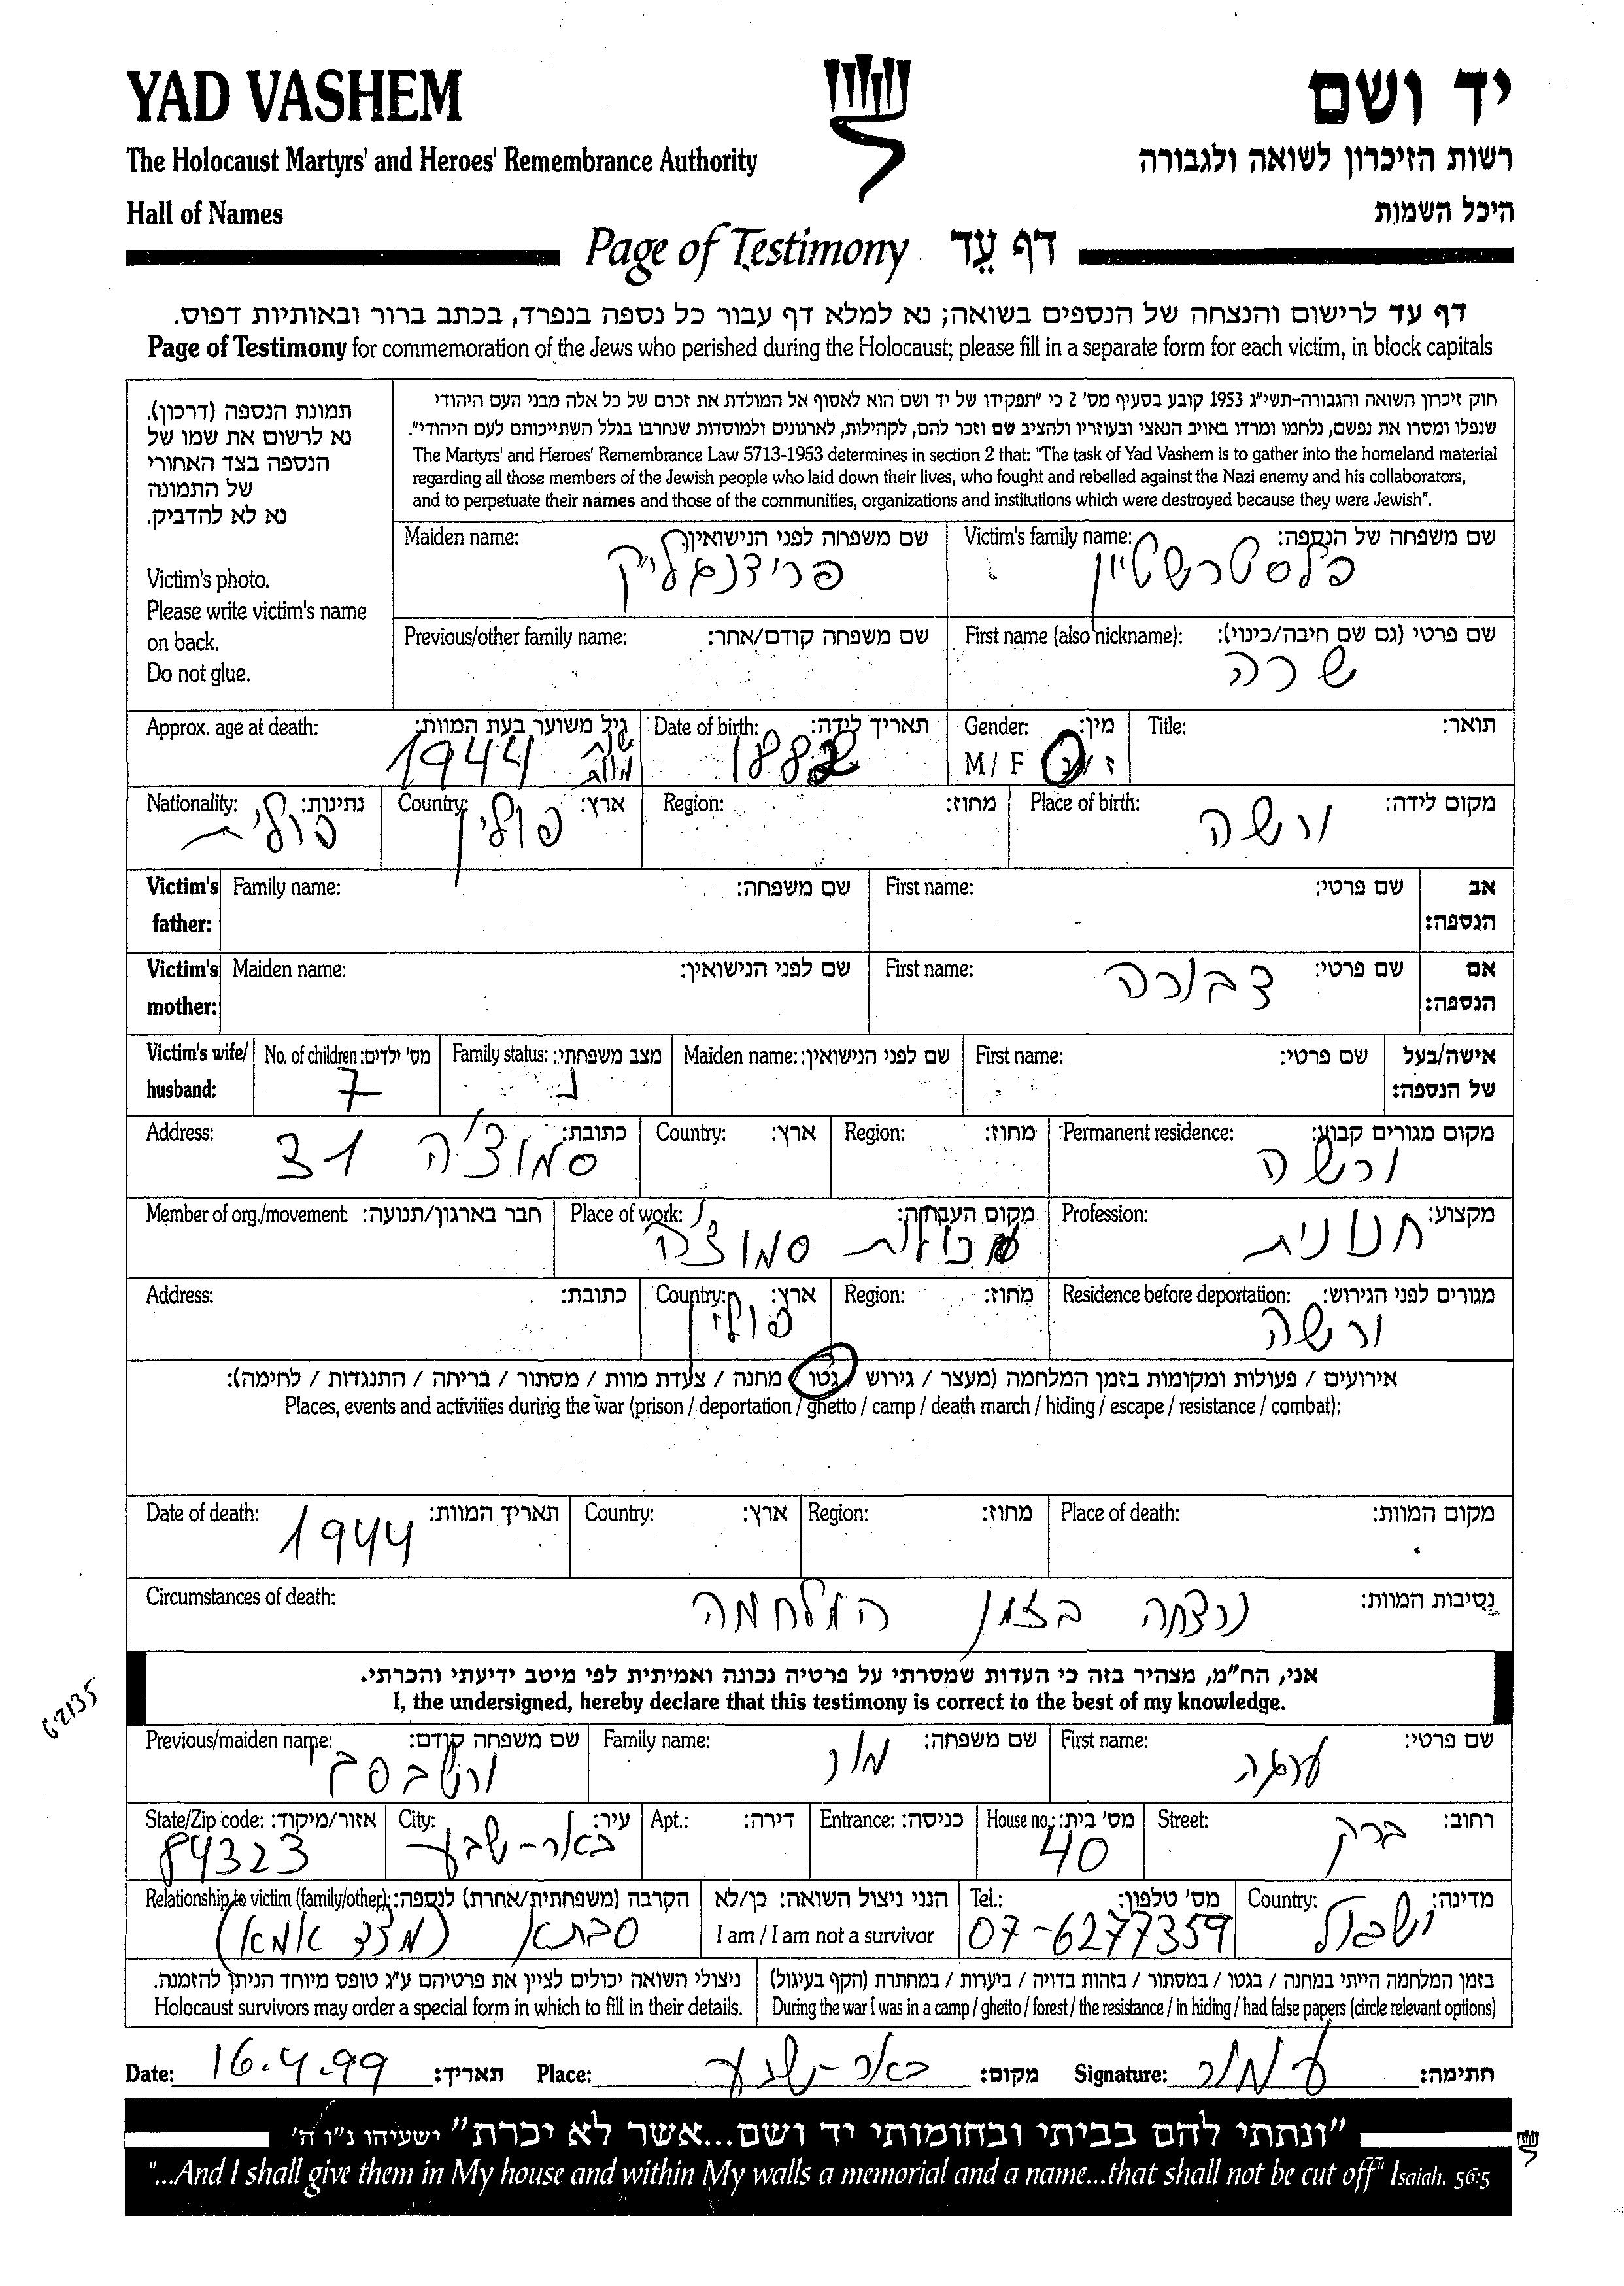 YAD VASHEM
יד ושם
The Holocaust Martyrs' and Heroes' Remembrance Authority
רשות הזיכרון לשואה ולגבורה
Hall of Names
היכל השמות
Page of Testimony דף עֵד
דף עד לרישום והנצחה של הנספים בשואה; נא למלא דף עבור כל נספה בנפרד, בכתב ברור ובאותיות דפוס.
Page of Testimony for commemoration of the Jews who perished during the Holocaust; please fill in a separate form for each victim, in block capitals
תמונת הנספה (דרכון).
נא לרשום את שמו של
הנספה בצד האחורי
של התמונה
נא לא להדביק.
Victim's photo.
Please write victim's name
on back.
Do not glue.
חוק זיכרון השואה והגבורה-תשי"ג 1953 קובע בסעיף מס' 2 כי "תפקידו של יד ושם הוא לאסוף אל המולדת את זכרם של כל אלה מבני העם היהודי
שנפלו ומסרו את נפשם, נלחמו ומרדו באויב הנאצי ובעוזריו ולהציב שם וזכר להם, לקהילות, לארגונים ולמוסדות שנחרבו בגלל השתייכותם לעם היהודי".
The Martyrs' and Heroes' Remembrance Law 5713-1953 determines in section 2 that: "The task of Yad Vashem is to gather into the homeland material
regarding all those members of the Jewish people who laid down their lives, who fought and rebelled against the Nazi enemy and his collaborators,
and to perpetuate their names and those of the communities, organizations and institutions which were destroyed because they were Jewish".
Victim's family name: שם משפחה של הנספה:
פלסטרשטיין
Maiden name: שם משפחה לפני הנישואין:
פרידנגליק
First name (also nickname): שם פרטי (גם שם חיבה/כינוי):
שרה
Previous/other family name: שם משפחה קודם/אחר:
Title: תואר:
Gender: מין:
M / F ז / נ
Date of birth: תאריך לידה:
1882
Approx. age at death: גיל משוער בעת המוות:
שנת מוות 1944
Place of birth: מקום לידה:
ורשה
Region: מחוז:
Country: ארץ:
פולין
Nationality: נתינות:
פולית
Victim's father: Family name: שם משפחה: First name: שם פרטי: אב הנספה:
Victim's mother: Maiden name: שם לפני הנישואין: First name: שם פרטי: אם הנספה:
דבורה
Victim's wife/ husband: No. of children: מס' ילדים: Family status: מצב משפחתי: Maiden name: שם לפני הנישואין: First name: שם פרטי: אישה/בעל של הנספה:
7 נ
Permanent residence: מקום מגורים קבוע:
ורשה
Region: מחוז: Country: ארץ:
Address: כתובת:
סמוצ'ה 31
Profession: מקצוע:
חנונית
Place of work: מקום העבודה:
מכולת סמוצ'ה
Member of org./movement: חבר בארגון/תנועה:
Residence before deportation: מגורים לפני הגירוש:
ורשה
Region: מחוז: Country: ארץ:
פולין
Address: כתובת:
אירועים / פעולות ומקומות בזמן המלחמה (מעצר / גירוש / גטו / מחנה / צעדת מוות / מסתור / בריחה / התנגדות / לחימה):
Places, events and activities during the war (prison / deportation / ghetto / camp / death march / hiding / escape / resistance / combat):
Place of death: מקום המוות: Region: מחוז: Country: ארץ:
Date of death: תאריך המוות:
1944
Circumstances of death: נסיבות המוות:
נרצחה בזמן המלחמה
אני, הח"מ, מצהיר בזה כי העדות שמסרתי על פרטיה נכונה ואמיתית לפי מיטב ידיעתי והכרתי.
I, the undersigned, hereby declare that this testimony is correct to the best of my knowledge.
First name: שם פרטי:
Family name: שם משפחה:
מור
Previous/maiden name: שם משפחה קודם:
Street: רחוב:
ברק
House no.: מס' בית:
40
Entrance: כניסה: Apt.: דירה:
City: עיר:
באר-שבע
State/Zip code: אזור/מיקוד:
84323
Country: מדינה:
ישראל
Tel.: מס' טלפון:
07-6277359
הנני ניצול השואה: כן/לא
I am / I am not a survivor
Relationship to victim (family/other): הקרבה (משפחתית/אחרת) לנספה:
סבתא (מצד אמא)
בזמן המלחמה הייתי במחנה / בגטו / במסתור / בזהות בדויה / ביערות / במחתרת (הקף בעיגול)
During the war I was in a camp / ghetto / forest / the resistance / in hiding / had false papers (circle relevant options)
ניצולי השואה יכולים לציין את פרטיהם ע"ג טופס מיוחד הניתן להזמנה.
Holocaust survivors may order a special form in which to fill in their details.
Date: 16.4.99 תאריך: Place: באר-שבע מקום: Signature: ע מור חתימה:
"ונתתי להם בביתי ובחומותי יד ושם...אשר לא יכרת" ישעיהו נ"ו ה'
"...And I shall give them in My house and within My walls a memorial and a name...that shall not be cut off" Isaiah. 56:5